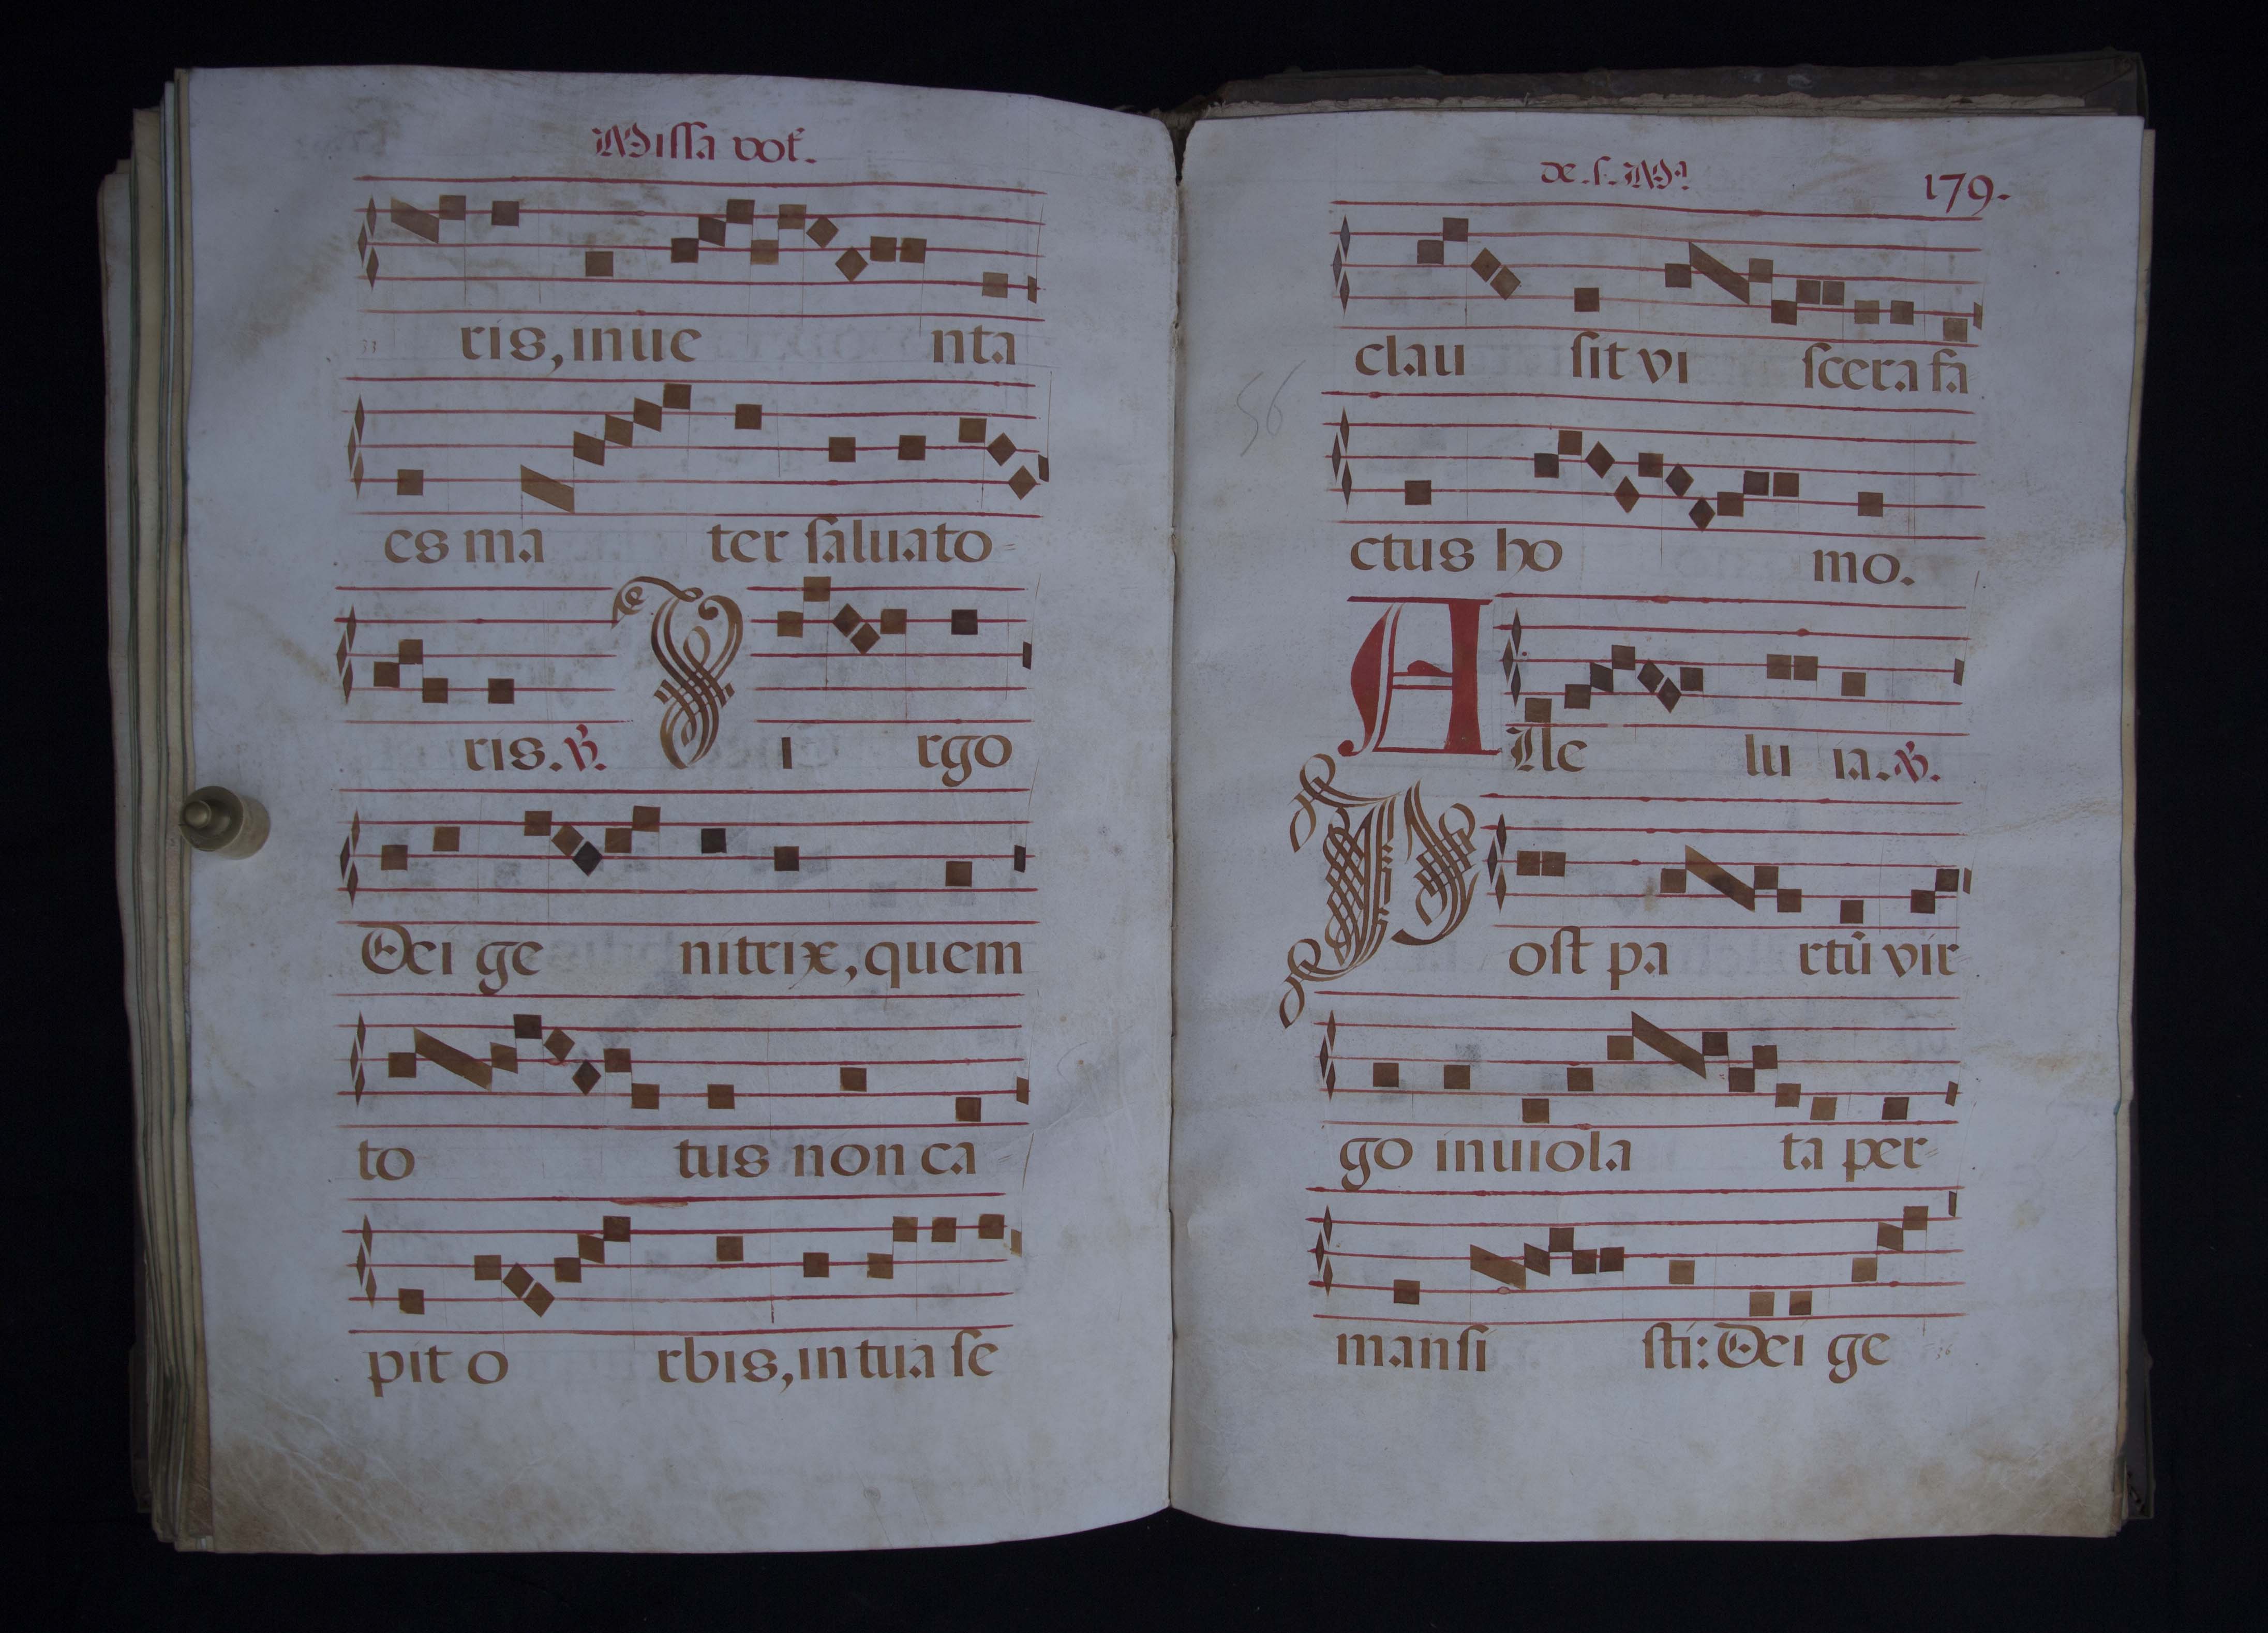 Missa vot.
ris, inue nta
es ma ter saluato=
ris. ℣. Vi rgo
Dei ge nitrix, quem
to tus non ca
pit o rbis, in tua se
de. s. Mª
179.
clau sit vi scera fa
56
ctus ho mo.
Alle lu ia. ℣.
Post pa rtũ vir=
go inuiola ta per=
mansi sti: Dei ge